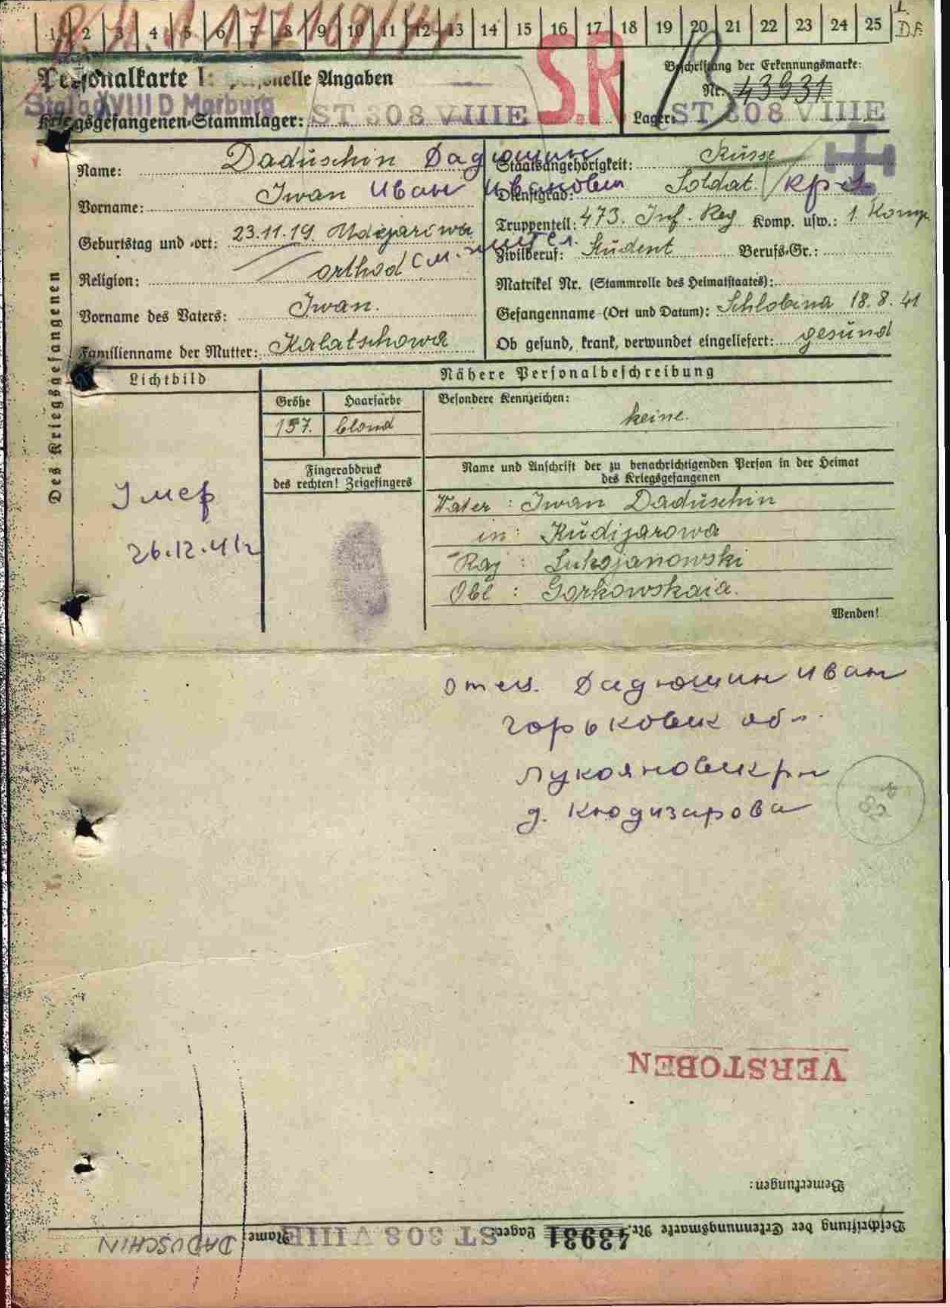 1 2 3 4 5 6 7 8 9 10 11 12 13 14 15 16 17 18 19 20 21 22 23 24 25
Personalkarte I: Personelle Angaben
Stalag XVIII D Marburg
Kriegsgefangenen-Stammlager: ST 308 VIIIE
S.R
Beschriftung der Erkennungsmarke:
Nr. 43931
Lager: ST 308 VIIIE
Des Kriegsgefangenen
Name: Daduschin Дадюшин
Vorname: Iwan Иван Иванович
Geburtstag und -ort: 23.11.19.
Religion: orthod
Vorname des Vaters: Iwan.
Familienname der Mutter: Kalatschowa
Staatsangehörigkeit: Russe
Dienstgrad: Soldat / кр-ц
Truppenteil: 473. Inf. Reg Komp. usw.: 1. Komp.
Zivilberuf: Student Berufs-Gr.:
Matrikel Nr. (Stammrolle des Heimatstaates):
Gefangenname (Ort und Datum): Schlobina 18.8.41
Ob gesund, krank, verwundet eingeliefert: gesund
Lichtbild
Nähere Personalbeschreibung
Größe Haarfarbe Besondere Kennzeichen:
157. blond keine.
Fingerabdruck
des rechten! Zeigefingers
Name und Anschrift der zu benachrichtigenden Person in der Heimat
des Kriegsgefangenen
Vater: Iwan Daduschin
in: Kudijarowa
Raj: Lukojanowski
Obl: Gorkowskaia.
Wenden!
Умер
26.12.41г
отец. Дадюшин Иван
Горьковск обл.
Лукояновск рн
д. Кюдизарова
VERSTOBEN
Bemerkungen:
Beschriftung der Erkennungsmarke Nr. 43931 Lager: ST 308 VIIIE Name DADUSCHIN